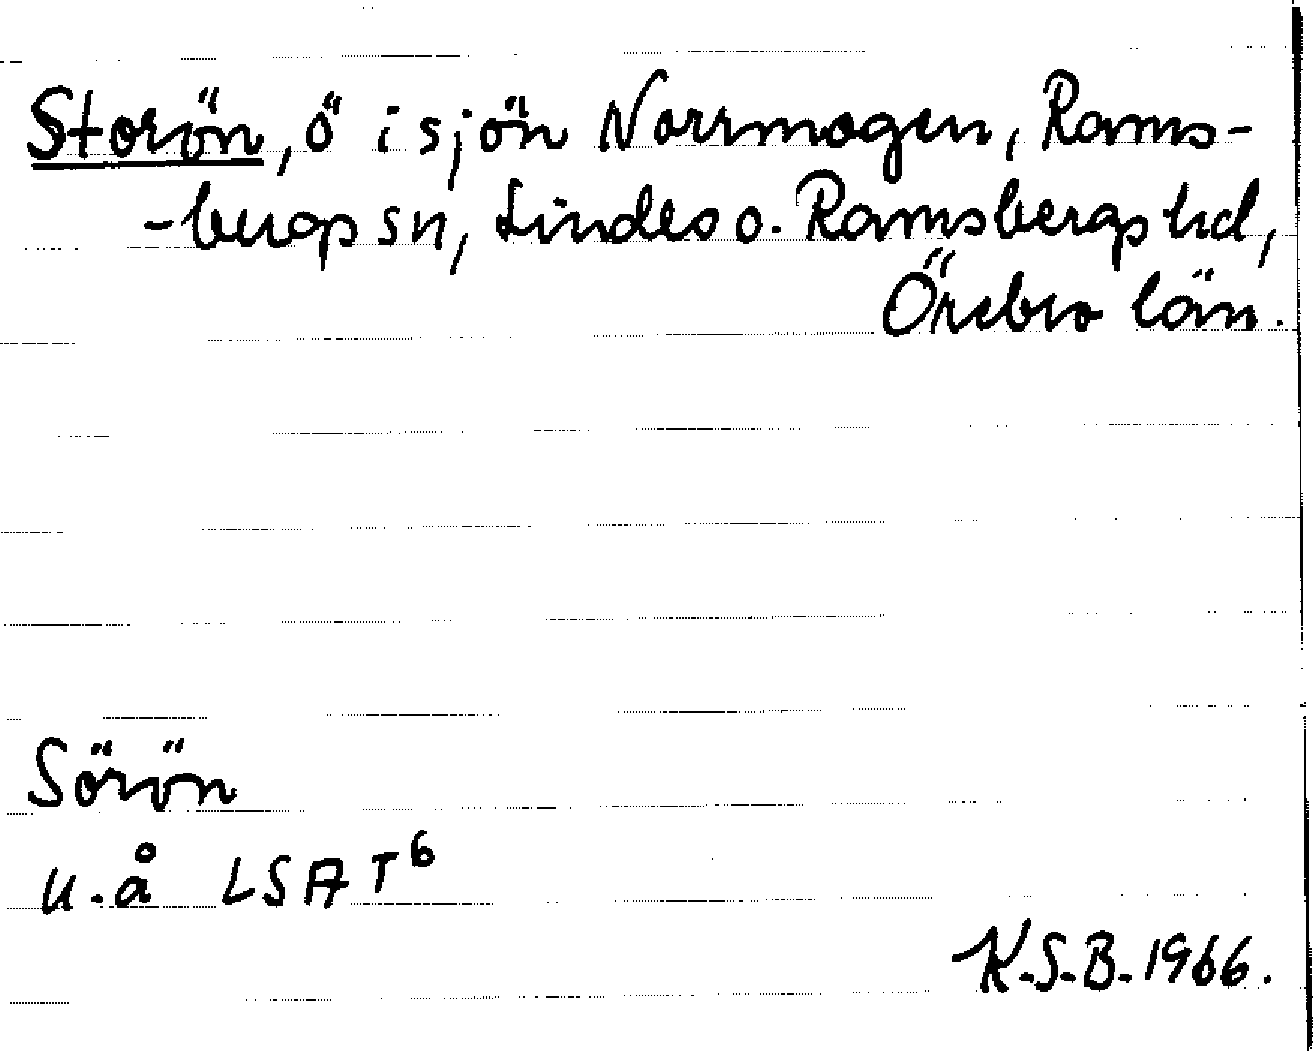 Storön, ö i sjön Norrmogen, Rams-
-bergs sn, Lindes o. Ramsbergs hd,
Örebro län.
Sörön
u.å LSA T6
K.S.B. 1966.